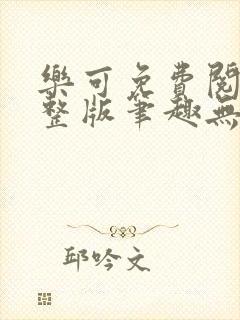 樂可免費閱
整版筆趣無
邱吟文